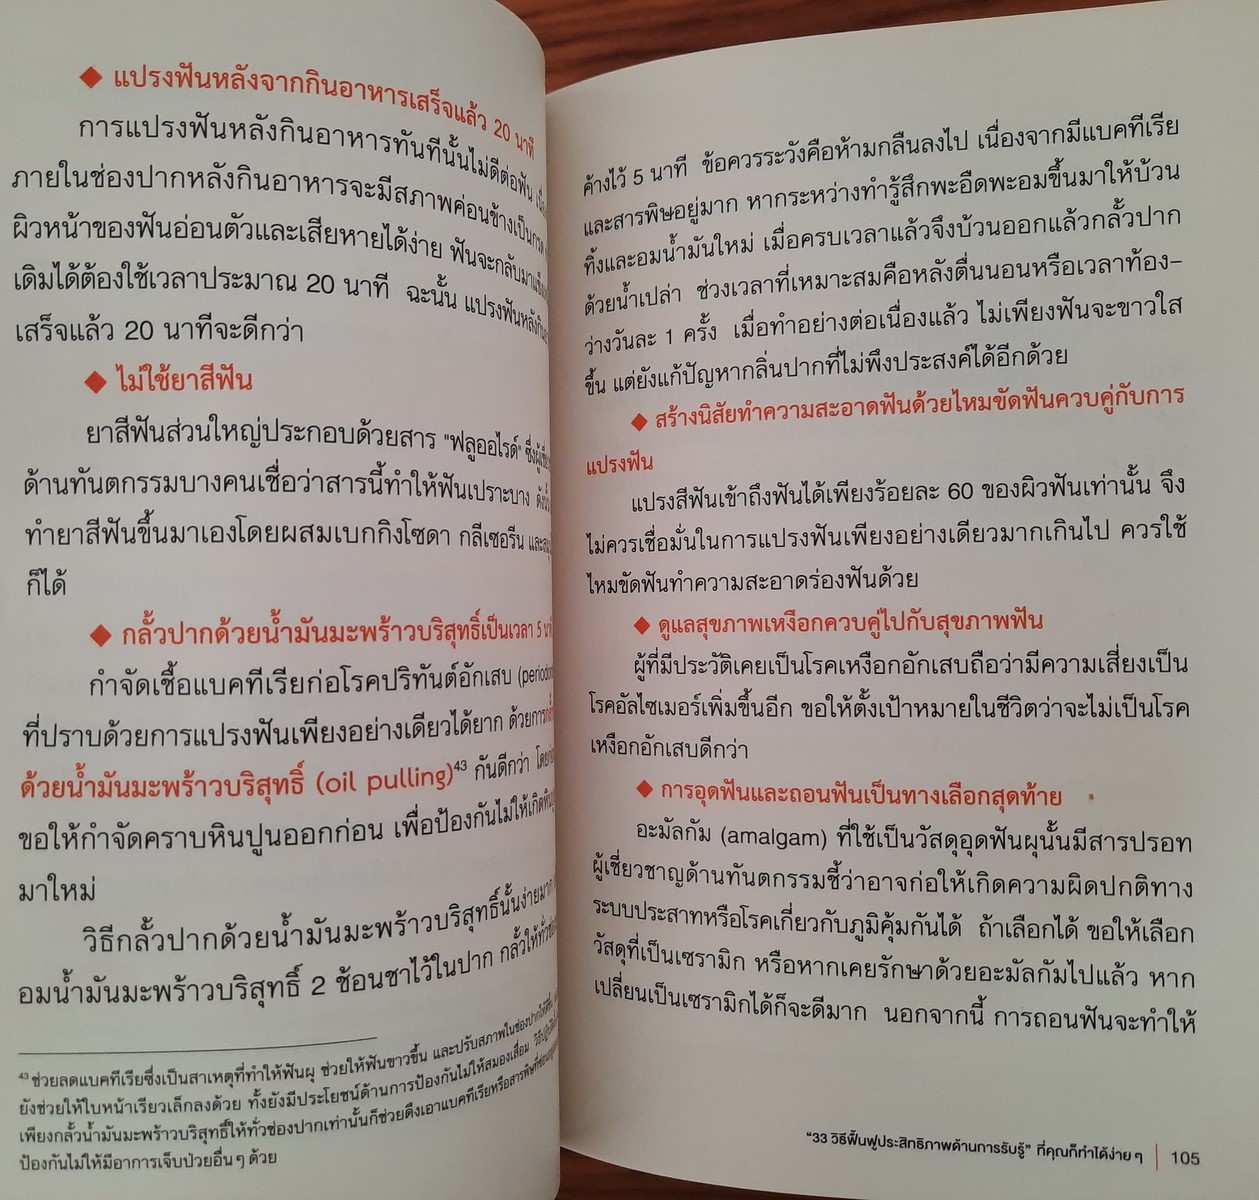 ◆ แปรงฟันหลังจากกินอาหารเสร็จแล้ว 20 นาที
การแปรงฟันหลังกินอาหารทันทีนั้นไม่ดีต่อฟัน
ภายในช่องปากหลังกินอาหารจะมีสภาพค่อนข้างเป็นกรด
ผิวหน้าของฟันอ่อนตัวและเสียหายได้ง่าย ฟันจะกลับมาแข็ง
เดิมได้ต้องใช้เวลาประมาณ 20 นาที ฉะนั้น แปรงฟันหลังกิน
เสร็จแล้ว 20 นาทีจะดีกว่า
◆ ไม่ใช้ยาสีฟัน
ยาสีฟันส่วนใหญ่ประกอบด้วยสาร "ฟลูออไรด์"
ด้านทันตกรรมบางคนเชื่อว่าสารนี้ทำให้ฟันเปราะบาง
ทำยาสีฟันขึ้นมาเองโดยผสมเบกกิงโซดา กลีเซอรีน
ก็ได้
◆ กลั้วปากด้วยน้ำมันมะพร้าวบริสุทธิ์เป็นเวลา 5
กำจัดเชื้อแบคทีเรียก่อโรคปริทันต์อักเสบ
ที่ปราบด้วยการแปรงฟันเพียงอย่างเดียวได้ยาก ด้วยการ
ด้วยน้ำมันมะพร้าวบริสุทธิ์ (oil pulling)43 กันดีกว่า
ขอให้กำจัดคราบหินปูนออกก่อน เพื่อป้องกันไม่ให้เกิด
มาใหม่
วิธีกลั้วปากด้วยน้ำมันมะพร้าวบริสุทธิ์นั้นง่ายมาก
อมน้ำมันมะพร้าวบริสุทธิ์ 2 ช้อนชาไว้ในปาก กลั้วให้ทั่ว
43 ช่วยลดแบคทีเรียซึ่งเป็นสาเหตุที่ทำให้ฟันผุ ช่วยให้ฟันขาวขึ้น และปรับสภาพในช่องปากให้ดีขึ้น
ยังช่วยให้ใบหน้าเรียวเล็กลงด้วย ทั้งยังมีประโยชน์ด้านการป้องกันไม่ให้สมองเสื่อม
เพียงกลั้วน้ำมันมะพร้าวบริสุทธิ์ให้ทั่วช่องปากเท่านั้นก็ช่วยดึงเอาแบคทีเรียหรือสารพิษที่ซ่อนอยู่
ป้องกันไม่ให้มีอาการเจ็บป่วยอื่นๆ ด้วย
ค้างไว้ 5 นาที ข้อควรระวังคือห้ามกลืนลงไป เนื่องจากมีแบคทีเรีย
และสารพิษอยู่มาก หากระหว่างทำรู้สึกพะอืดพะอมขึ้นมาให้บ้วน
ทิ้งและอมน้ำมันใหม่ เมื่อครบเวลาแล้วจึงบ้วนออกแล้วกลั้วปาก
ด้วยน้ำเปล่า ช่วงเวลาที่เหมาะสมคือหลังตื่นนอนหรือเวลาท้อง–
ว่างวันละ 1 ครั้ง เมื่อทำอย่างต่อเนื่องแล้ว ไม่เพียงฟันจะขาวใส
ขึ้น แต่ยังแก้ปัญหากลิ่นปากที่ไม่พึงประสงค์ได้อีกด้วย
◆ สร้างนิสัยทำความสะอาดฟันด้วยไหมขัดฟันควบคู่กับการ
แปรงฟัน
แปรงสีฟันเข้าถึงฟันได้เพียงร้อยละ 60 ของผิวฟันเท่านั้น จึง
ไม่ควรเชื่อมั่นในการแปรงฟันเพียงอย่างเดียวมากเกินไป ควรใช้
ไหมขัดฟันทำความสะอาดร่องฟันด้วย
◆ ดูแลสุขภาพเหงือกควบคู่ไปกับสุขภาพฟัน
ผู้ที่มีประวัติเคยเป็นโรคเหงือกอักเสบถือว่ามีความเสี่ยงเป็น
โรคอัลไซเมอร์เพิ่มขึ้นอีก ขอให้ตั้งเป้าหมายในชีวิตว่าจะไม่เป็นโรค
เหงือกอักเสบดีกว่า
◆ การอุดฟันและถอนฟันเป็นทางเลือกสุดท้าย
อะมัลกัม (amalgam) ที่ใช้เป็นวัสดุอุดฟันผุนั้นมีสารปรอท
ผู้เชี่ยวชาญด้านทันตกรรมชี้ว่าอาจก่อให้เกิดความผิดปกติทาง
ระบบประสาทหรือโรคเกี่ยวกับภูมิคุ้มกันได้ ถ้าเลือกได้ ขอให้เลือก
วัสดุที่เป็นเซรามิก หรือหากเคยรักษาด้วยอะมัลกัมไปแล้ว หาก
เปลี่ยนเป็นเซรามิกได้ก็จะดีมาก นอกจากนี้ การถอนฟันจะทำให้
"33 วิธีฟื้นฟูประสิทธิภาพด้านการรับรู้" ที่คุณก็ทำได้ง่ายๆ | 105